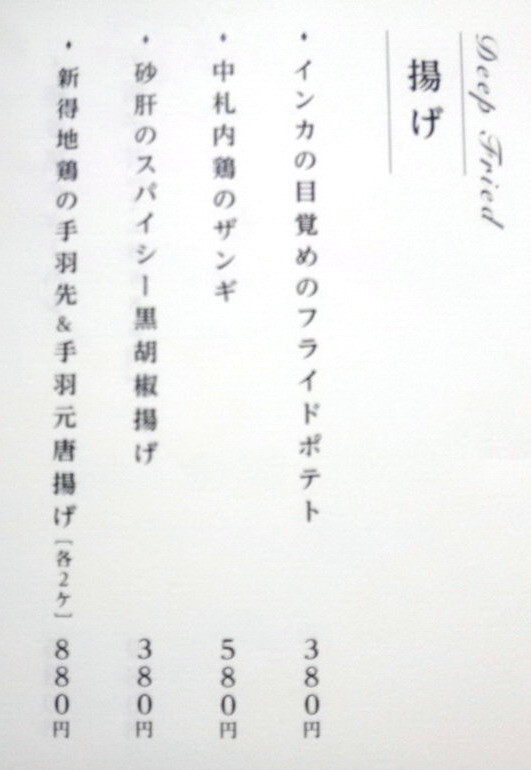 Deep Fried
揚げ
・インカの目覚めのフライドポテト 380円
・中札内鶏のザンギ 580円
・砂肝のスパイシー黒胡椒揚げ 380円
・新得地鶏の手羽先&手羽元唐揚げ[各2ケ] 880円